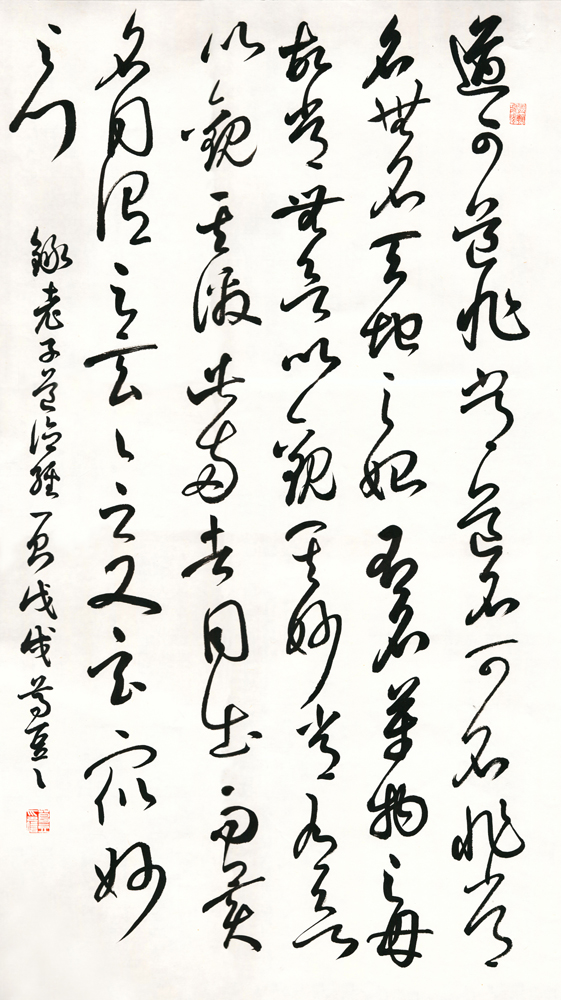 道可道非常道名可名非常
名無名天地之始有名萬物之母
故常無欲以觀其妙常有欲
以觀其徼此兩者同出而異
名同謂之玄々之又玄眾妙
之門
錄老子道德經一戊戌